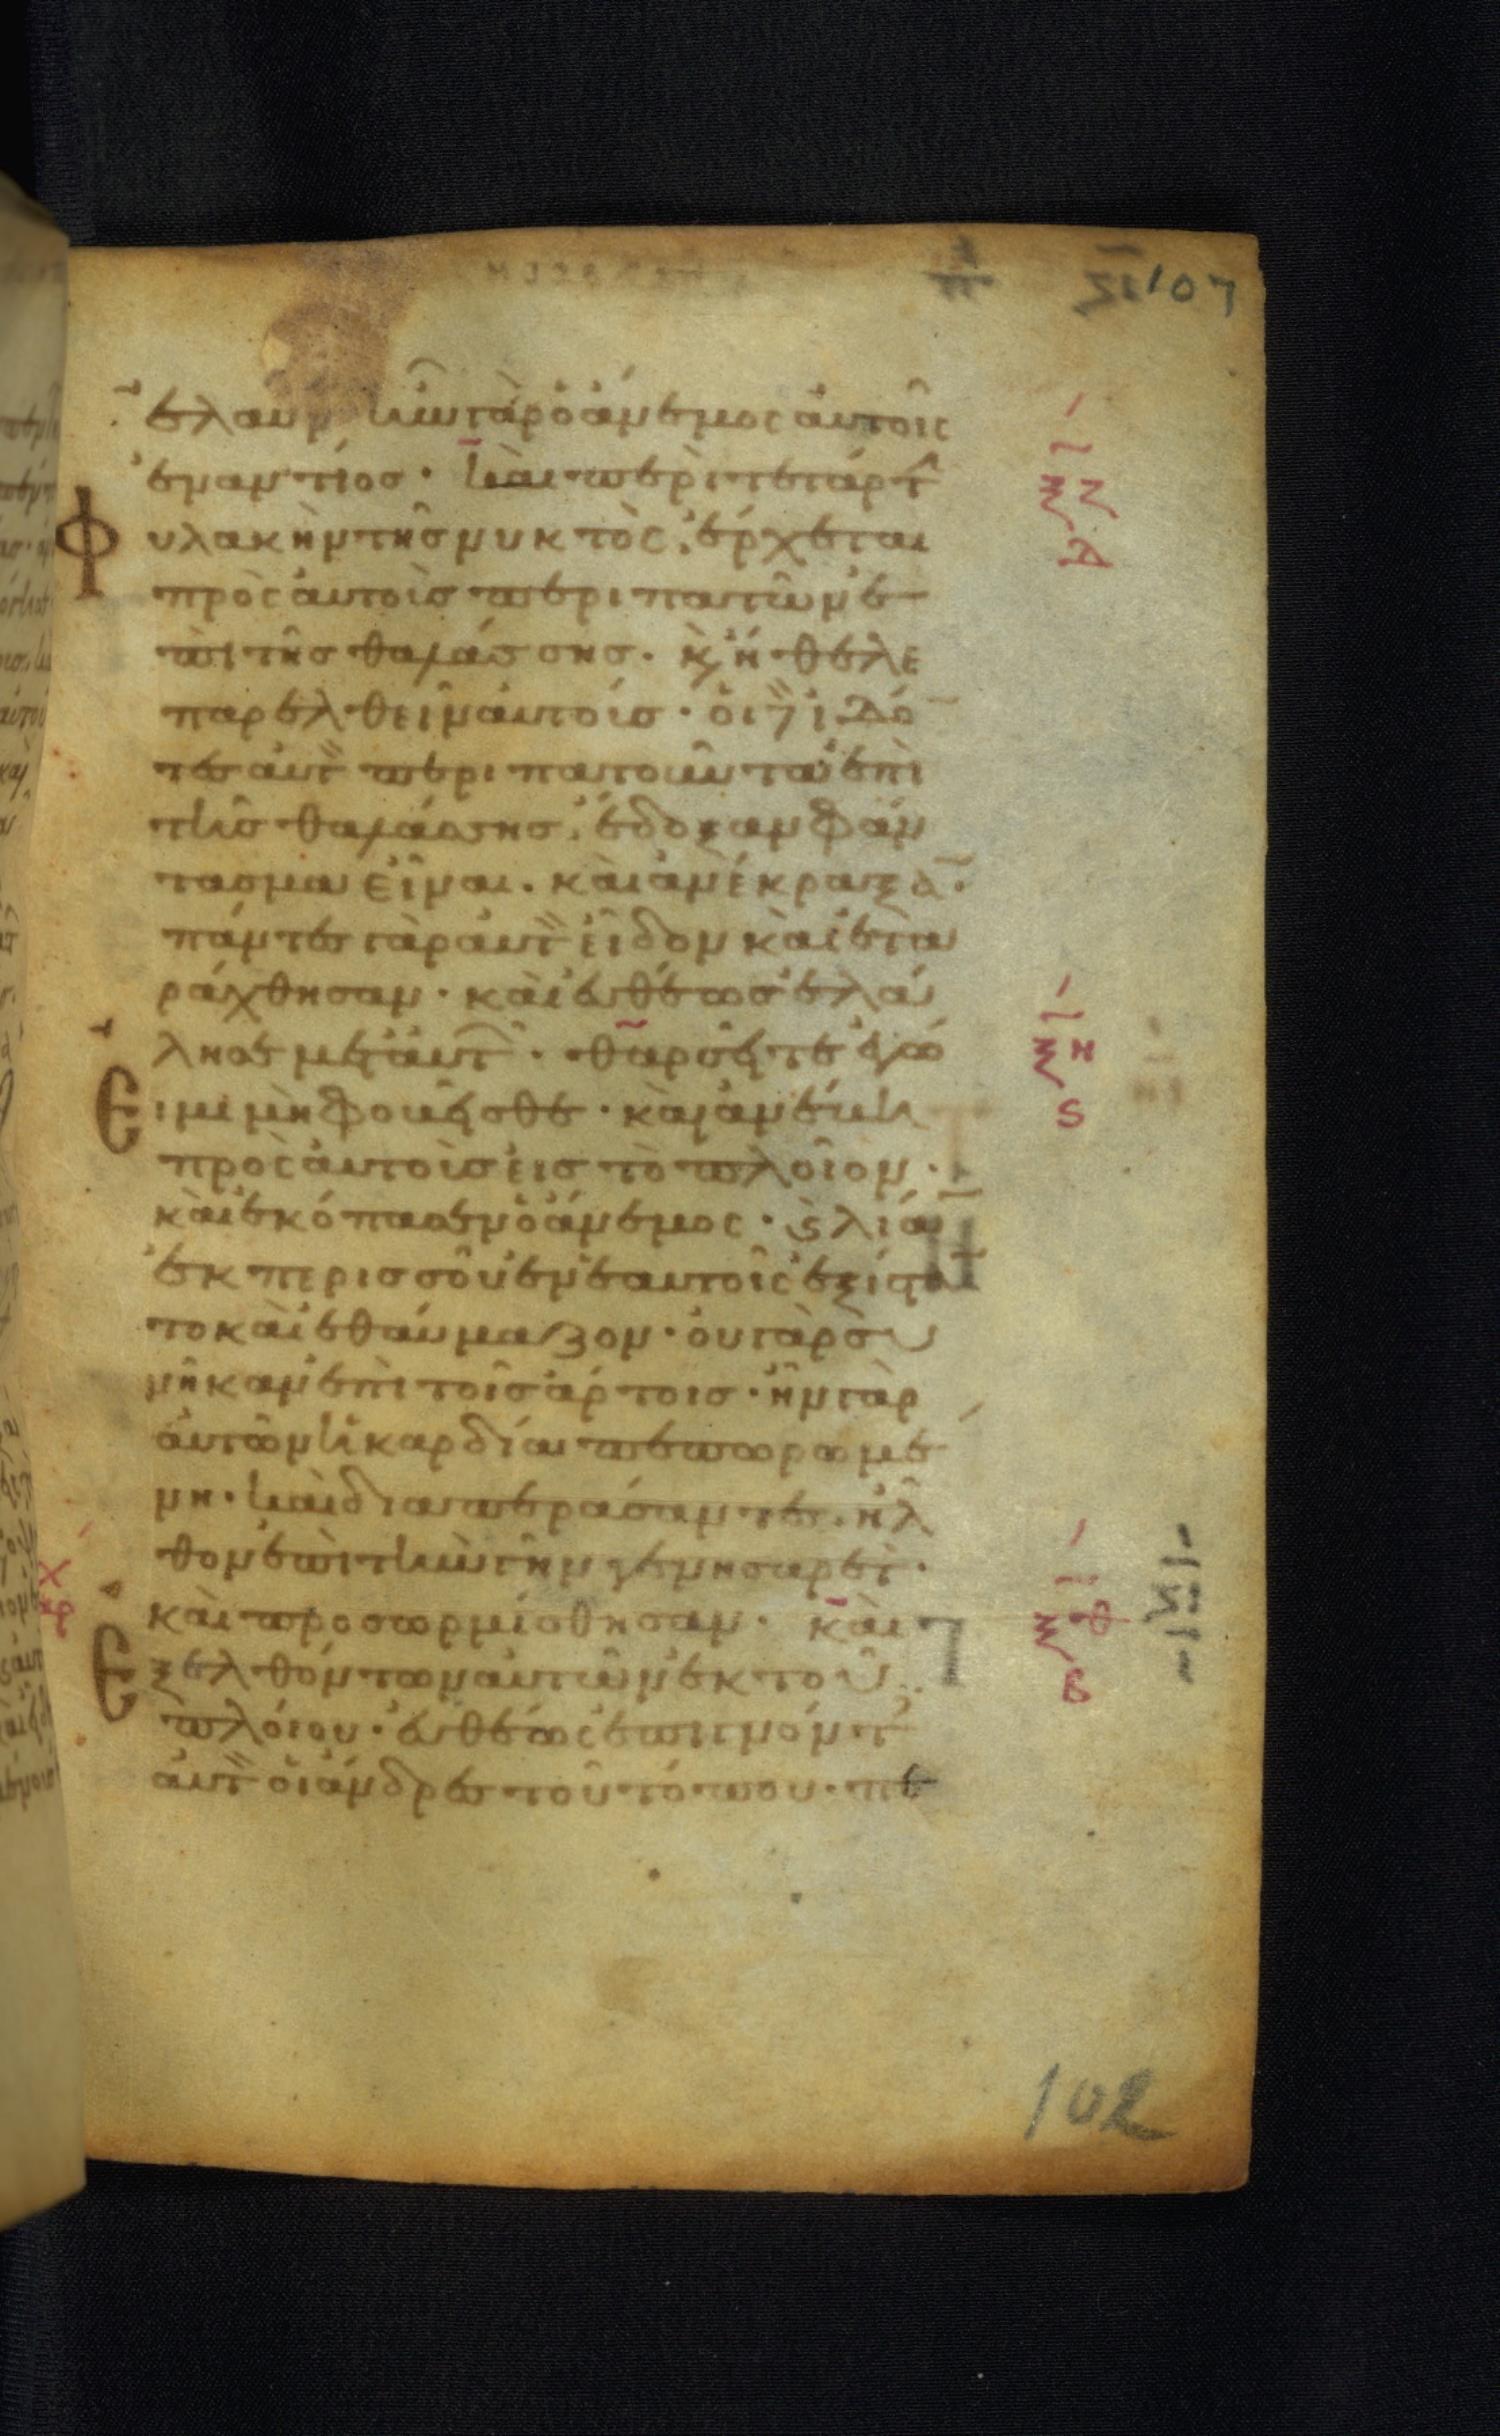 107
ἐλαύν ἦν γὰρ ὁ ἄνεμος αὐτοῖς
ἐναντίος· καὶ περὶ τετάρτ
Φυλακὴν τῆς νυκτὸς, ἔρχεται
πρὸς αὐτοὺς περιπατῶν ἐ
πὶ τῆς θαλάσσης. κ ἤθελε
παρελθεῖν αὐτοίς· οἱ δὲ ἰδό
τες αὐτ περιπατοῦντα ἐπὶ
τῆς θαλάσσης, ἔδοξαν φάν
τασμα εἶναι. καὶ ἀνέκραξα·
πάντες γὰρ αὐτ εἶδον καὶ ἐτα
ράχθησαν· καὶ εὐθέως ἐλά
λησε μετ αὐτ· θαρσεῖτε ἐγώ
Ειμι μὴ φοβεῖσθε· καὶ ἀνέβη
πρὸς αὐτοὺς εἰς τὸ πλοῖον·
καὶ ἐκόπασεν ὁ ἄνεμος· ϗ λία
ἐκ περισσοῦ ἐν ἑαυτοῖς ἐξίσα
το καὶ ἐθαύμαζον· οὐ γὰρ συ
νῆκαν ἐπὶ τοῖς ἄρτοις· ἦν γὰρ
αὐτῶν ἡ καρδία πεπωρωμέ
νη· καὶ διαπεράσαντες. ἦλ
θον ἐπὶ τὴν γῆν γενησαρέτ·
καὶ προσωρμίσθησαν· καὶ
Εξελθόντων αὐτῶν ἐκ τοῦ
πλοίου· εὐθέως ἐπιγνόντ
αὐτ οἱ ἄνδρες τοῦ τόπου· πε
102